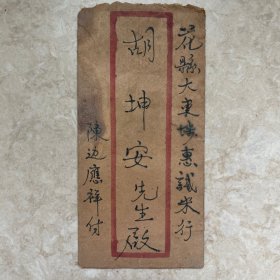 花縣大東城惠誠米行
胡坤安先生啟
陳边應祥付